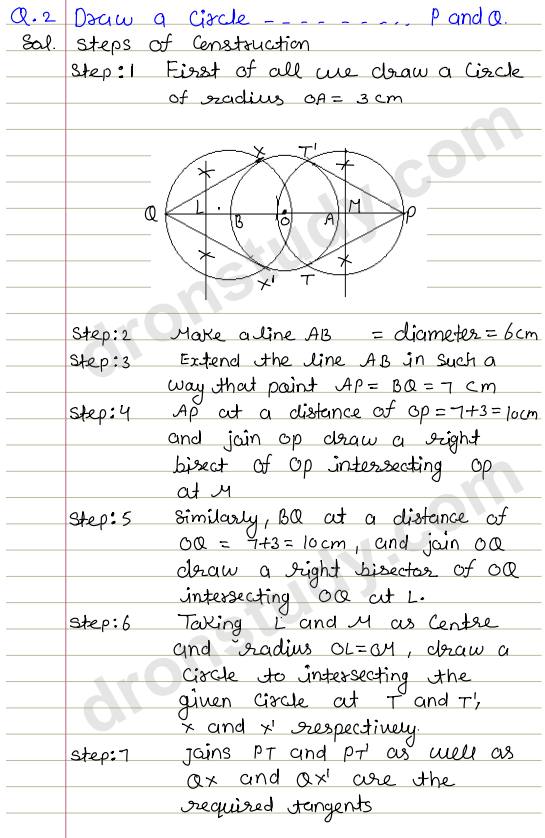 Q.2 Draw a Circle - - - - - - . . . . P and Q.
Sol. Steps of Construction
Step:1 First of all we draw a Circle
of radius OA = 3 cm
X T'
Q L B O A M P
X' T
Step:2 Make a line AB = diameter = 6cm
Step:3 Extend the line AB in such a
way that point AP = BQ = 7 cm
Step:4 AP at a distance of OP = 7+3 = 10cm
and join OP draw a right
bisect of OP intersecting OP
at M
Step:5 Similarly, BQ at a distance of
OQ = 7+3 = 10cm, and join OQ
draw a right bisector of OQ
intersecting OQ at L.
Step:6 Taking L and M as Centre
and radius OL = OM, draw a
Circle to intersecting the
given Circle at T and T',
X and X' respectively.
Step:7 Joins PT and PT' as well as
QX and QX' are the
required tangents
dronstudy.com
dronstudy.com